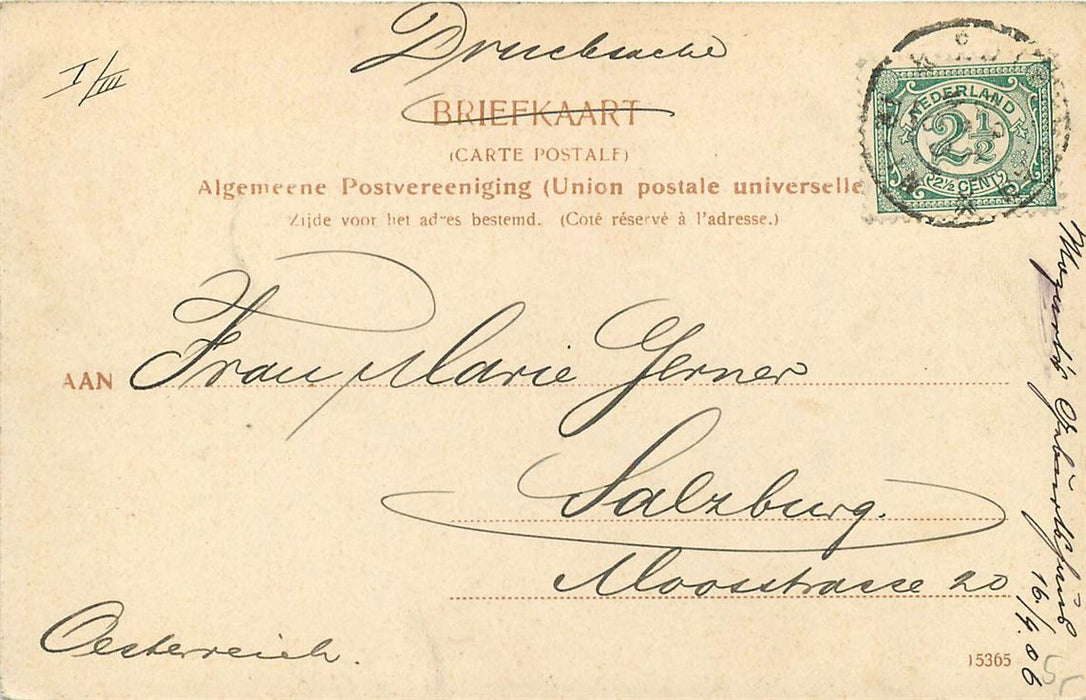 Drucksache
I/III
BRIEFKAART
(CARTE POSTALE)
Algemeene Postvereeniging (Union postale universelle
Zijde voor het adres bestemd. (Coté réservé à l'adresse.)
NEDERLAND
2½
2½ CENT
AAN Frau Marie Gerner
Salzburg.
Moosstrasse 20
Oesterreich.
15365
Mozarts Geburtshaus
16/4.06
5,-